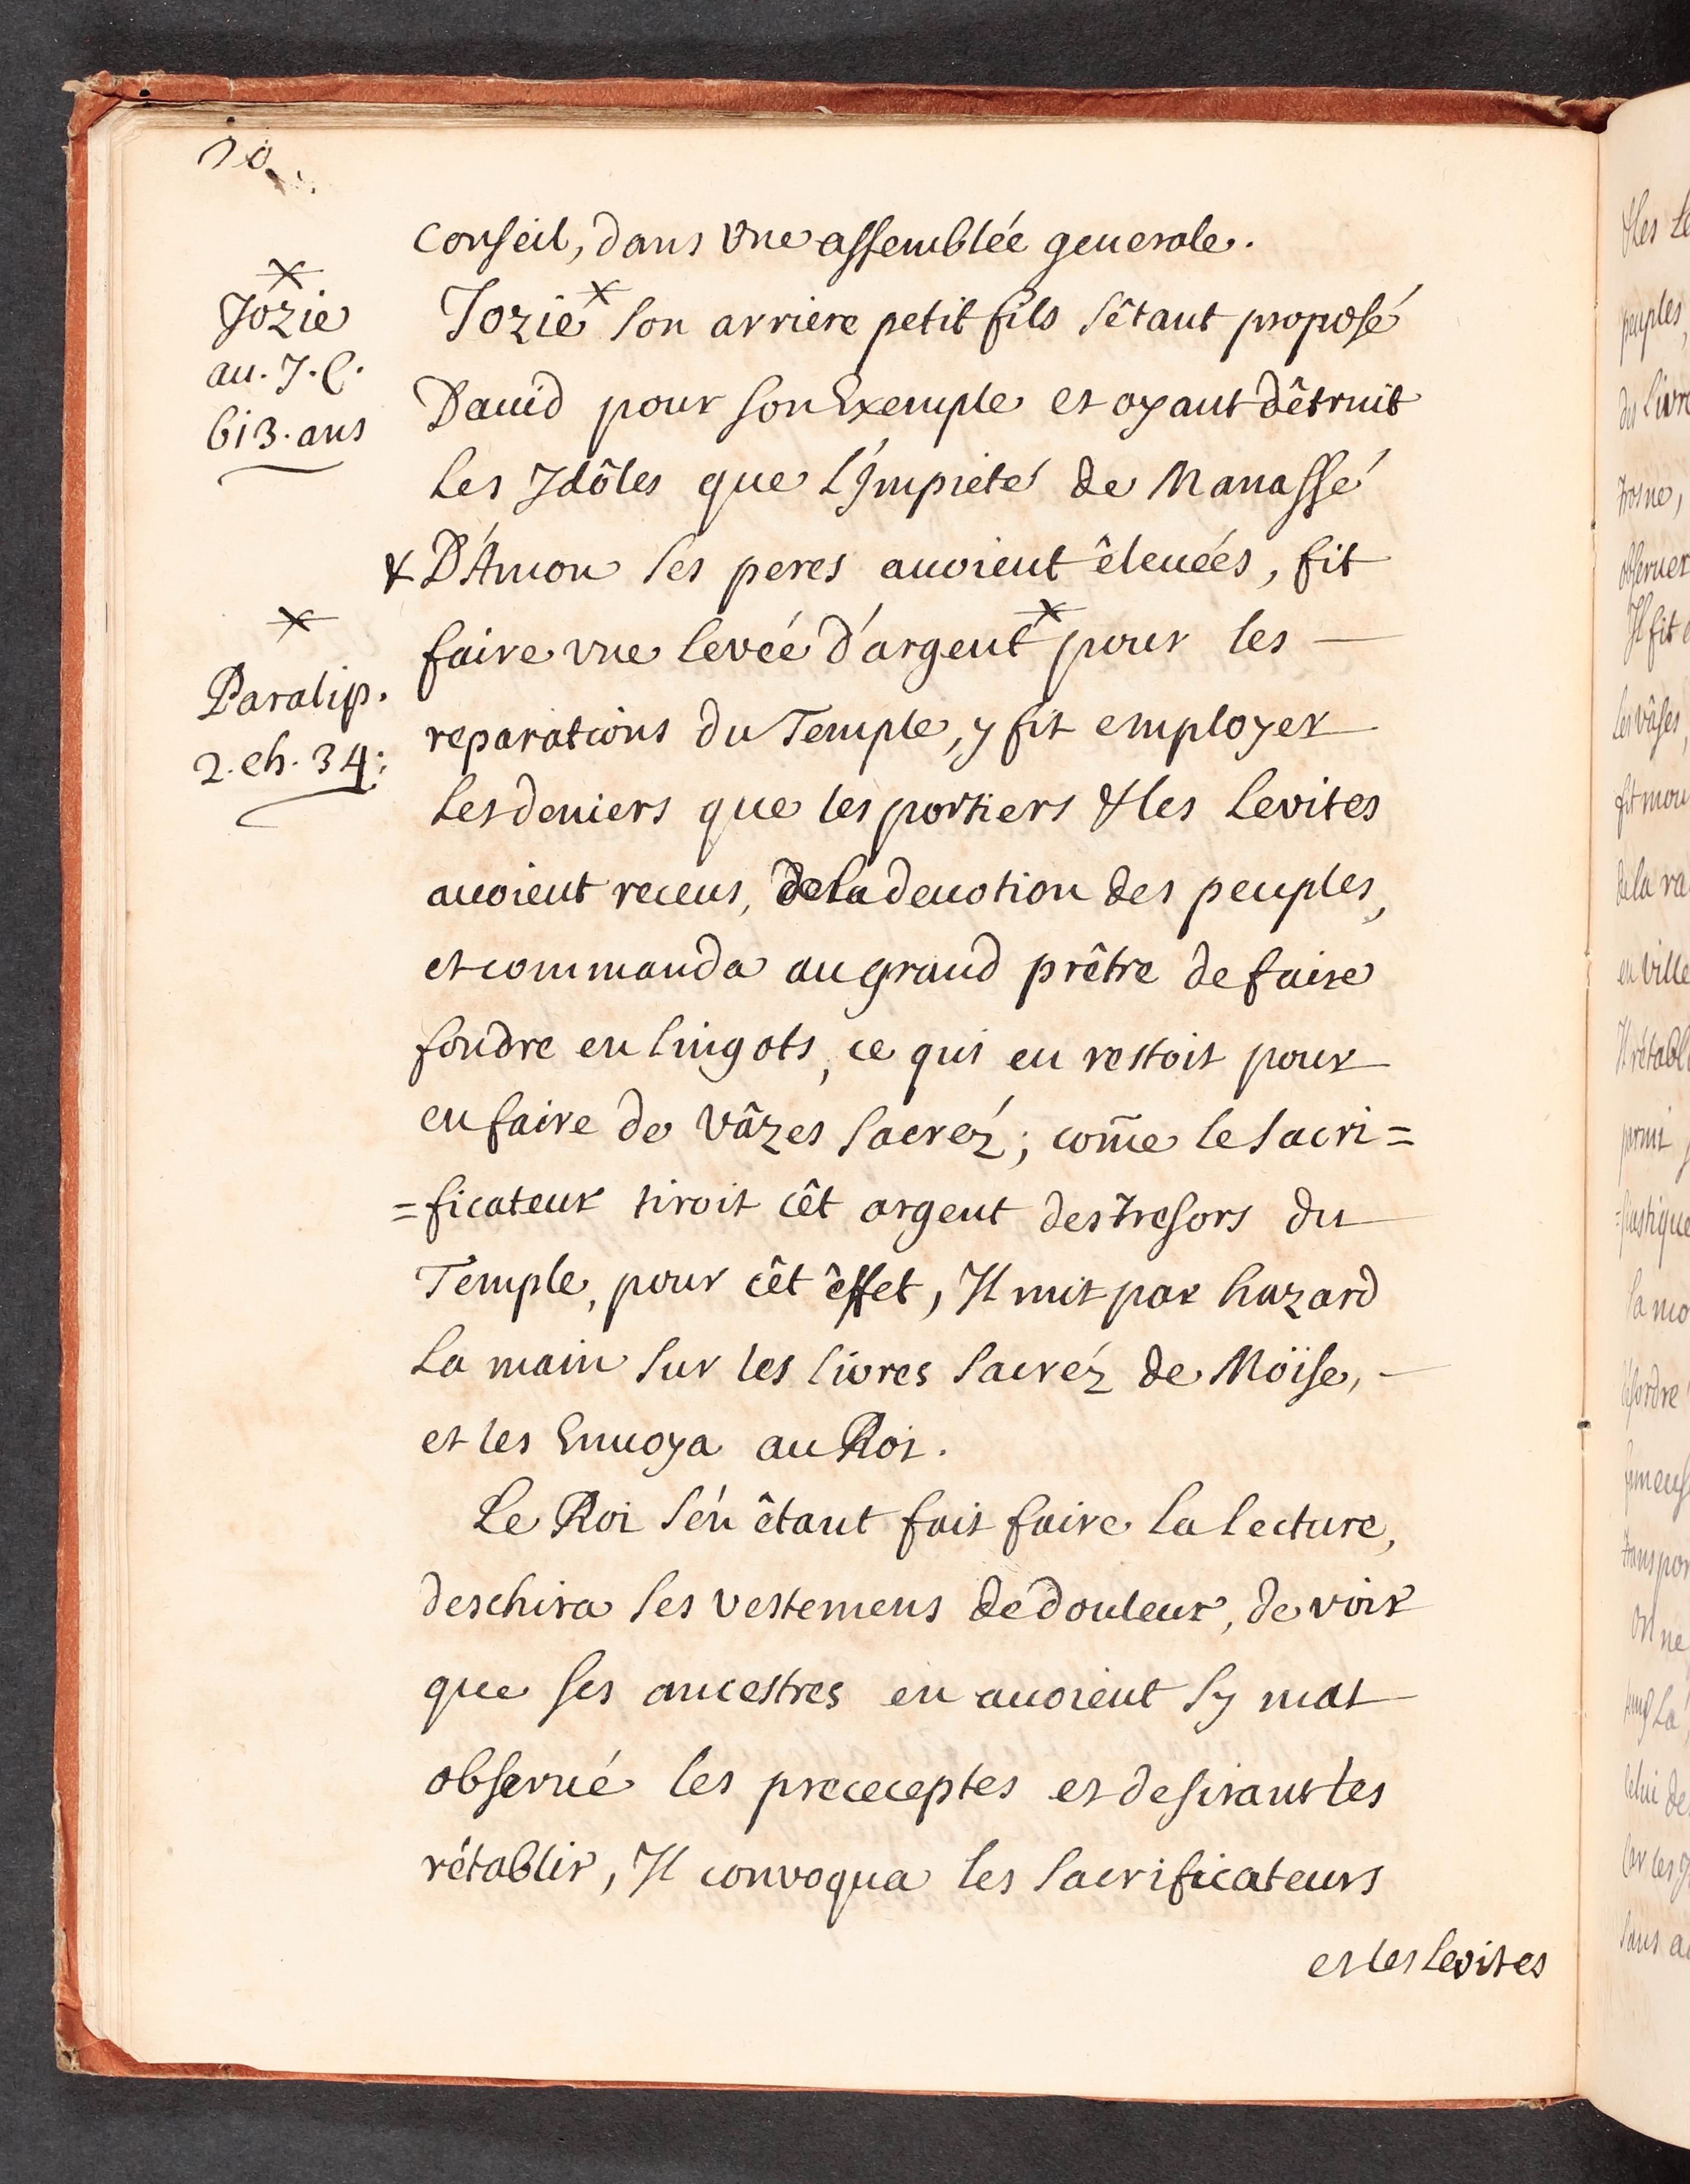 10
conseil, dans vne assemblée generale.
×
Jozie
au. J. C.
613. ans
Jozie × son arriere petit fils s'êtant proposé
Dauid pour son Exemple et ayant dêtruit
les Jdôles que L'Jmpieté de Manassé
& D'Amon ses peres auoient êleuées, fit
faire vne levée d'argent × pour les —
×
Paralip.
2. ch. 34:
reparations du Temple, y fit employer
les deniers que les portiers & les Levites
auoient receus, de la deuotion des peuples,
et commanda au grand prêtre de faire
fondre en lingots, ce qui en restoit pour
en faire de vâzes sacréz; com̃e le sacri=
=ficateur tiroit cêt argent des tresors du
Temple, pour cêt êffet, Jl mit par hazard
la main sur les livres sacréz de Moïse, -
et les Enuoya au Roi.
Le Roi s'én êtant fait faire la lecture,
deschira ses vestemens de douleur, de voir
que ses ancestres en auoient sy mal
obserué les prececeptes et desirant les
rétablir, Jl convoqua les sacrificateurs
et les levites